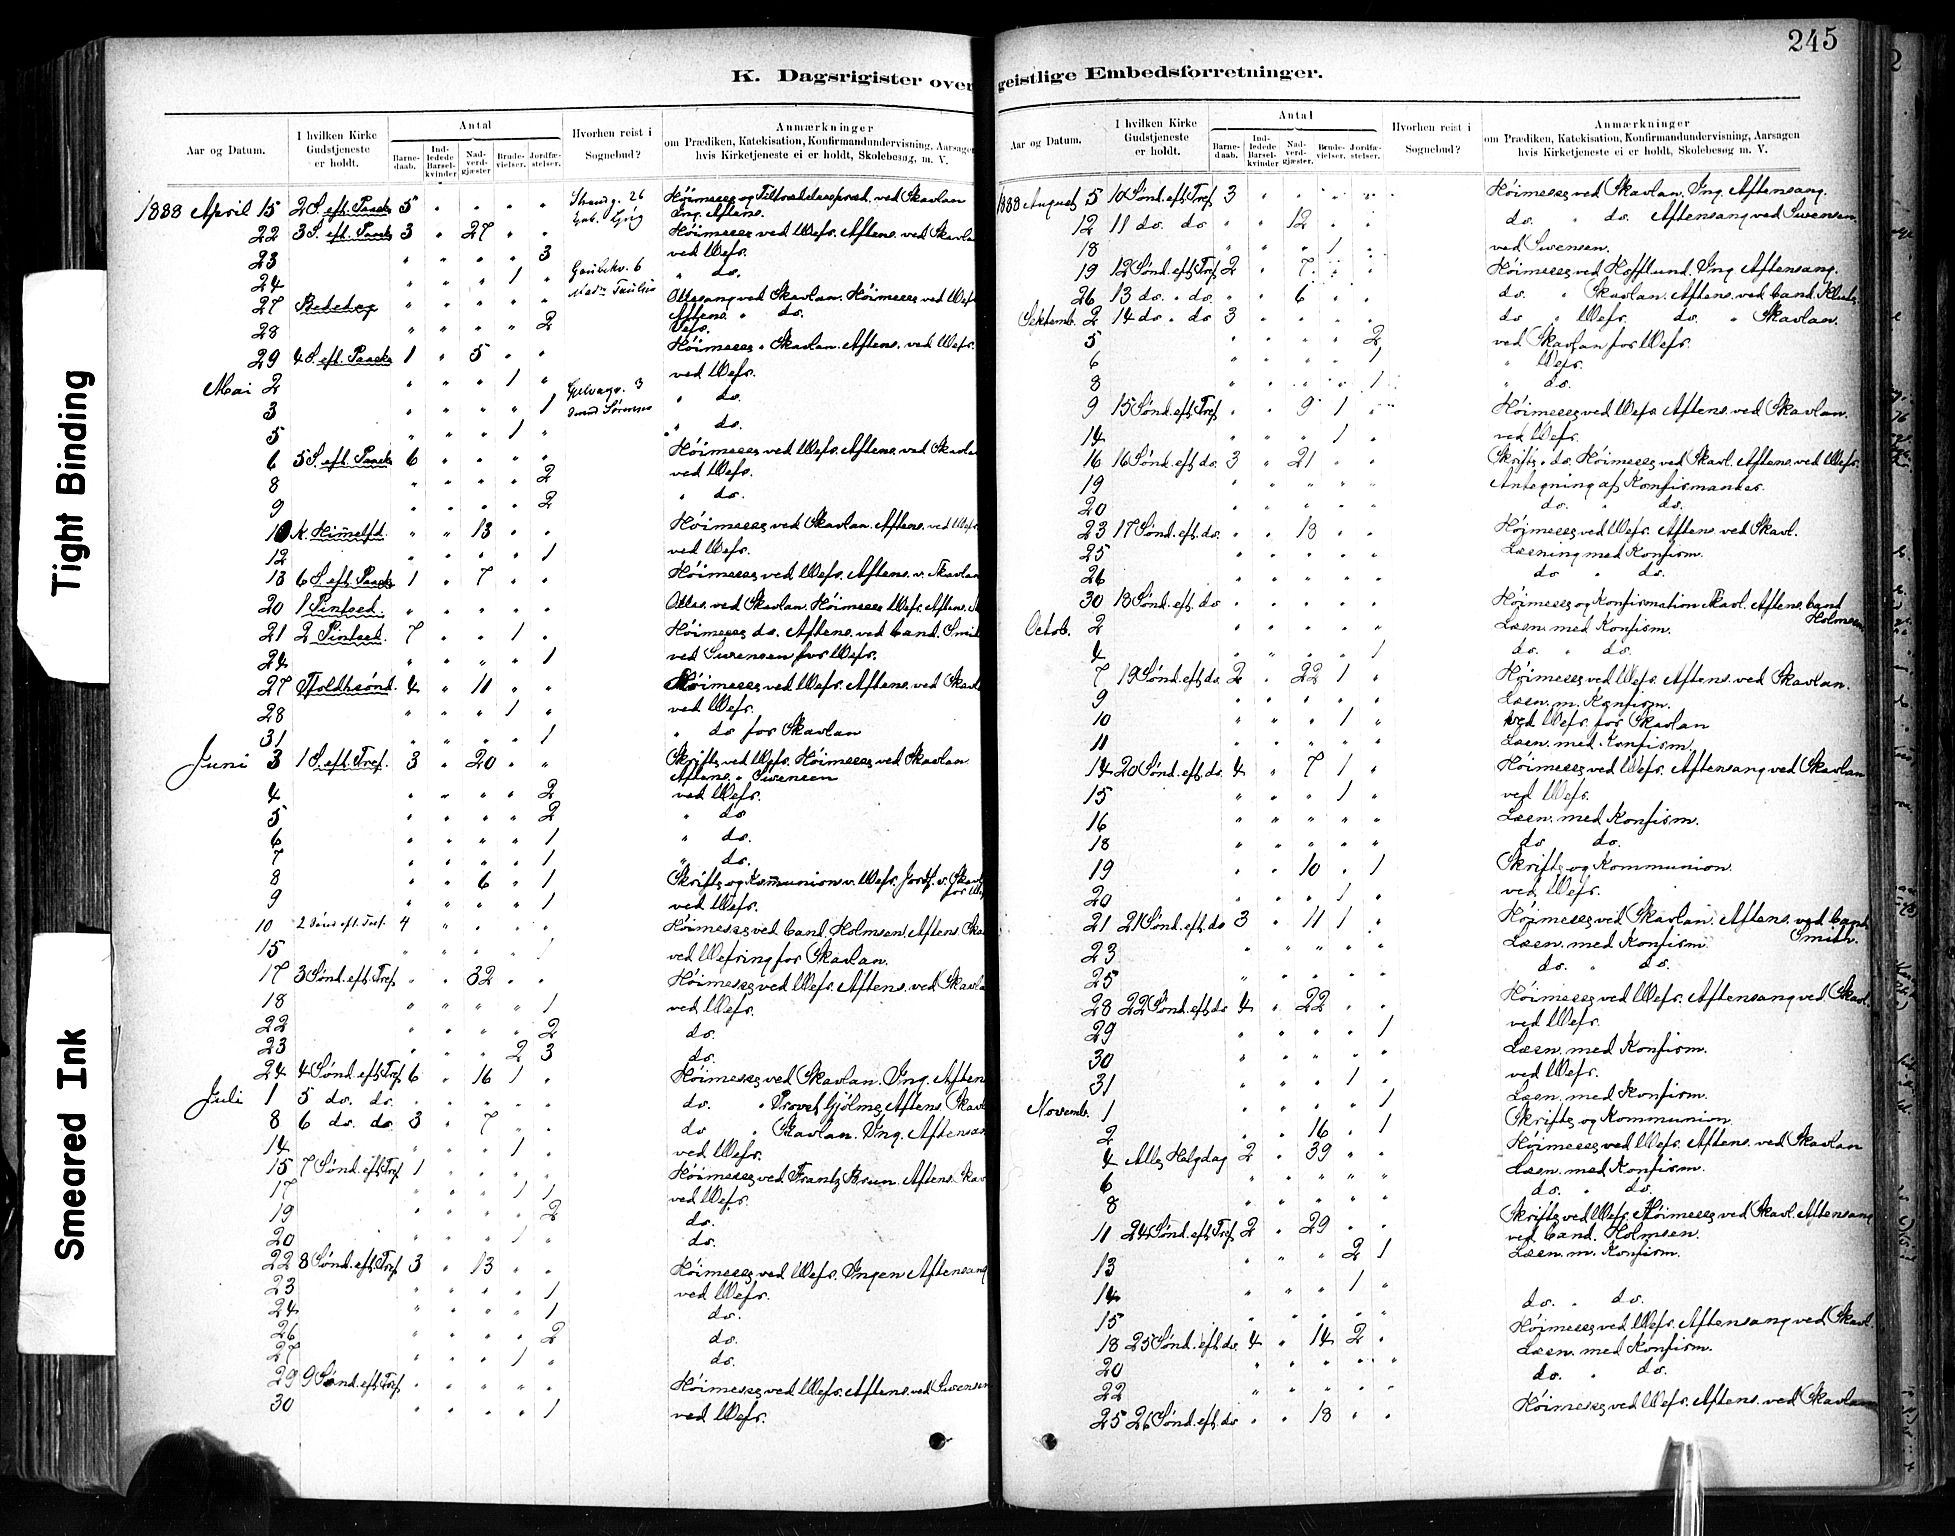 245
K. Dagsrigister over geistlige Embedsforretninger.
Tight Binding
Smeared Ink
Aar og Datum. I hvilken Kirke Gudstjeneste er holdt. Antal Barnedaab. Indledede Barselkvinder Nadverdgjæster Brudevielser. Jordfæstelser. Hvorhen reist i Sognebud? Anmærkninger om Prædiken, Katekisation, Konfirmandundervisning, Aarsagen hvis Kirketjeneste ei er holdt, Skolebesøg, m. V.
1888 April 15 2 S. eft. Paaske 5 " " " " Strandg. 26 Høimesse og Tiltrædelsespræd. ved Skavlan
Ing. Aftens.
22 3 S. eft. Paaske 3 " 27 " " Høimesse ved Wefr. Aftens. ved Skavla
23 " " " " 3 ved Wefr.
24 " " " 1 " " do.
27 Bededag " " " " " Ottesang ved Skavlan. Høimesse ved Wefr
Aftens. " do.
28 " " " " 2 Wefr.
29 4 S. eft. Paaske 1 " 5 " " Høimesse " Skavlan. Aftens. ved Wefr.
Mai 2 " " " 1 " ved Wefr.
3 " " " " 1 " do.
5 " " " 1 " " do.
6 5 S. eft. Paaske 6 " " " " Høimesse ved Wefr. Aftens. ved Skavla
8 " " " " 2 ved Wefr.
9 " " " " 2 " do.
10 K. Himelfd. " " 13 " " Høimesse ved Skavlan. Aftens. ved Wefr
12 " " " " 1 ved Wefr.
13 6 S. eft. Paaske 1 " 7 " " Høimesse ved Wefr. Aftens. v. Skavlan
20 1 Pintsed. " " " " " Ottes. ved Skavlan. Høimesse Wefr. Aftens.
21 2 Pintsed. 7 " " 1 " Høimesse do. Aftens. ved Cand. Smit
24 " " " " 1 ved Svensen for Wefr.
27 Trefoldhsønd. 4 " 11 " " Høimesse ved Wefr. Aftens. ved Skavl
28 " " " 1 " ved Wefr.
31 " " " " 1 " do for Skavlan
Juni 3 1 S. eft. Tref. 3 " 20 " " Skrifts ved Wefr. Høimesse ved Skavlan
Aftens. " Svensen
4 " " " " 2 ved Wefr.
5 " " " " 2 " do
6 " " " " 1 " do.
7 " " " " 1 " do.
8 " " 6 " 1 Skrifts og Kommunion v. Wefr. Jordf. v. Skavl
9 " " " " 1 ved Wefr.
10 2 Sønd eft. Tref. 4 " " " " Høimesse ved Cand. Holmsen. Aftens. Ska
15 " " " " 1 ved Wefring for Skavlan.
17 3 Sønd. eft. Tref. " " 32 " " Høimesse ved Wefr. Aftens. ved Skavla
18 " " " " 1 ved Wefr.
22 " " " " 2 do.
23 " " " 2 3 do.
24 4 Sønd. eft. Tref 6 " 16 1 " Høimesse ved Skavlan. Ing. Aften
Juli 1 5 do. do. " " " " " do. " Provst Gjølme, Aftens. Skavl
8 6 do. do. 3 " 7 " " do " Skavlan. Ing. Aftensan
14 " " " 1 " ved Wefr.
15 7 Sønd. eft. Tref 1 " " " " Høimesse ved Frantz Bruun. Aftens. Skav
17 " " " 1 1 ved Wefr.
19 " " " " 2 do.
20 " " " 1 " do.
22 8 Sønd. eft. Tref 3 " 13 " " Høimesse ved Wefr. Ingen Aftensang
23 " " " " 1 ved Wefr.
24 " " " " 1 do.
26 " " " " 2 do.
27 " " " 1 " do.
29 9 Sønd. eft. Tref. " " " " " Høimesse ved Wefr. Aftens. ved Svensen
30 " " " " 1 ved Wefr.
Aar og Datum. I hvilken Kirke Gudstjeneste er holdt. Antal Barnedaab. Indledede Barselkvinder Nadverdgjæster Brudevielser. Jordfæstelser. Hvorhen reist i Sognebud? Anmærkninger om Prædiken, Katekisation, Konfirmandundervisning, Aarsagen hvis Kirketjeneste ei er holdt, Skolebesøg m. V.
1888 August 5 10 Sønd. eft. Tref 3 " " " " Høimesse ved Skavlan. Ing. Aftensang.
12 11 do. do " " 12 " " do. " do. Aftensang ved Svensen
18 " " " 1 " ved Svensen.
19 12 Sønd. eft. Tref 2 " 7 " " Høimesse ved Hofflund. Ing Aftensang.
26 13 do. " do. " " 6 " " do. " Skavlan. Aftens. ved Cand.
Septemb. 2 14 do " do 3 " " " " do " Wefr. do. " Skavlan.
5 " " " " 2 ved Skavlan for Wefr.
6 " " " " 1 " Wefr.
8 " " " " 1 " do.
9 15 Sønd. eft. Tref " " 9 1 " Høimesse ved Wefr. Aftens. ved Skavlan.
14 " " " 1 " ved Wefr.
16 16 Sønd. eft do. 3 " 21 " " Skrifts " do. Høimesse ved Skavl. Aftens. ved Wefr.
19 " " " " " Antegning af Konfirmanter.
20 do. " do.
23 17 Sønd. eft. do. " " 13 " " Høimesse ved Wefr. Aftens ved Skavl.
25 " " " " " Læsning med Konfirm.
26 " " " " " do " do.
30 18 Sønd. eft. do " " " " " Høimesse og Konfirmation Skavl. Aftens. Cand Holmsen
Octob. 2 " " " " " Læsn. med Konfirm.
4 " " " " 1 do. " do.
7 19 Sønd. eft. do. 2 " 22 1 " Høimesse ved Wefr. Aftens ved Skavlan.
9 " " " " " Læsn. m. Konfirm.
10 " " " 1 " ved Wefr. for Skavlan
11 " " " " " Læsn. med Konfirm.
14 20 Sønd. eft. do. 4 " 7 1 " Høimesse ved Wefr. Aftensang ved Skavlan
15 " " " 1 " ved Wefr.
16 " " " " " Læsn. med Konfirm.
18 " " " " " do do.
19 " " 10 " 1 Skrifts og Kommunion
20 " " " 1 " ved Wefr.
21 21 Sønd. eft. do 3 " 11 1 " Høimesse ved Skavlan. Aftens. ved Cand Smith.
23 " " " " Læsn. med Konfirm.
25 " " " " " do. " do.
28 22 Sønd. eft. do 4 " 22 " " Høimesse ved Wefr. Aftensang ved Skavl.
29 " " " " 1 ved Wefr.
30 " " " " " Læsn. med Konfirm.
31 " " " 1 " ved Wefr.
Novemb. 1 " " " " 1 Læsn. med Konfirm.
2 " " 16 " 1 Skrifts og Kommunion
4 Alle Helgdag 2 " 39 " " Høimesse ved Wefr. Aftens. ved Skavlan
6 " " " " " Læsn. med Konfirm.
8 " " " " " do. " do.
11 24 Sønd. eft. Tref 2 " 29 " " Skrifts ved Wefr. Høimesse ved Skavl. Aftensang
ved Cand. Holmsen.
13 " " " 2 1 Læsn. m. Konfirm.
14 " " " 1 "
15 " " " " " do. " do.
18 25 Sønd. eft. do. 4 " 14 2 " Høimesse ved Wefr. Aftensang ved Skavl.
20 " " " " " Læsn. med Konfirm.
22 " " " " " do. " do.
25 26 Sønd. eft. do " " 18 " " Høimesse ved Wefr. Aftens. ved Skavlan